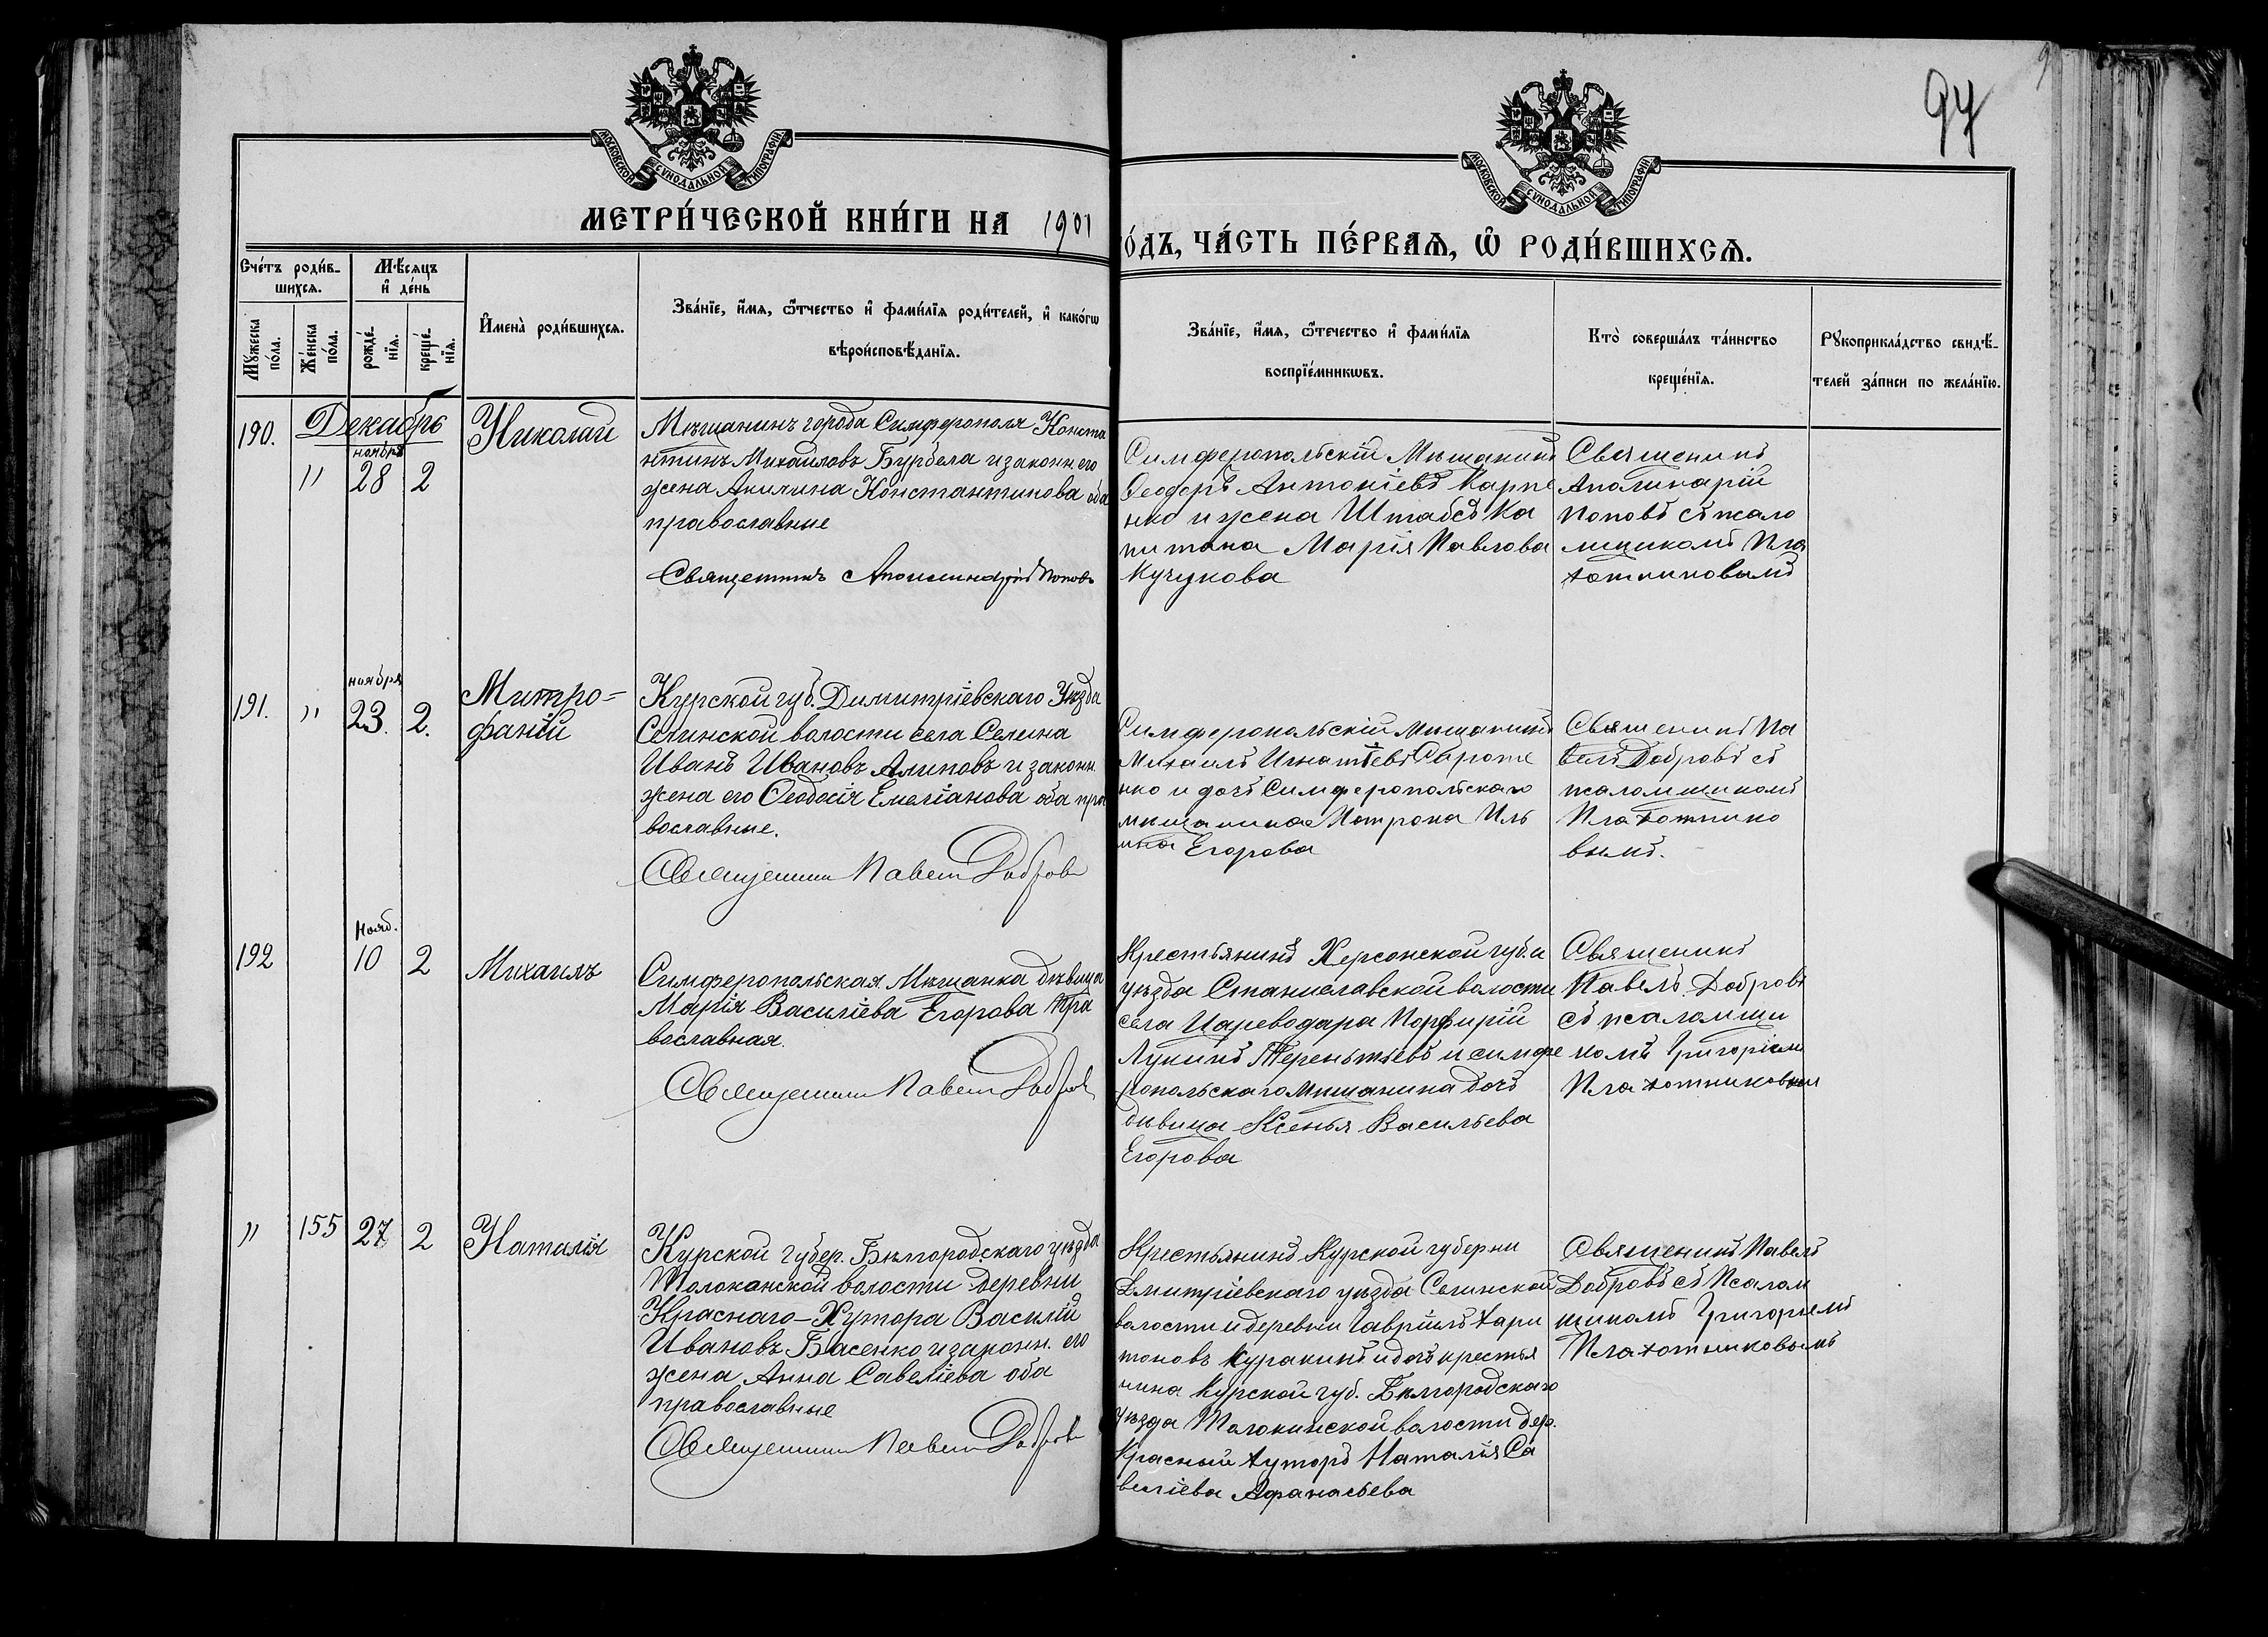 94
МОСКОВСКОЙ СѴНОДАЛЬНОЙ ТИПОГРАФІИ
МОСКОВСКОЙ СѴНОДАЛЬНОЙ ТИПОГРАФІИ
МЕТРИ́ЧЕСКОЙ КНИ́ГИ НА 1901
О́ДЪ, ЧА́СТЬ ПЕ́РВАѦ, Ѽ РОДИ́ВШИХСѦ.
Сче́тъ роди́в-
шихсѧ.
Мѣ́сѧцъ
и҆ де́нь
Мꙋ́жеска
по́ла.
Же́нска
по́ла.
рожде́-
нїѧ.
креще́-
нїѧ.
И҆мена̀ роди́вшихсѧ.
Зва́нїе, и҆́мѧ, ѻ҆́тчество и҆ фами́лїѧ роди́телей, и҆ како́гѡ
вѣроисповѣ́данїѧ.
Зва́нїе, и҆́мѧ, ѻ҆те́чество и҆ фами́лїѧ
воспрїе́мникѡвъ.
Кто̀ соверша́лъ та́инство
креще́нїѧ.
Рꙋкоприкла́дство свидѣ́-
телей за́писи по жела́нїю.
190.
Декабрь
ноября
" 28 2
Николай
Мѣщанинъ города Симферополя Конста
нтинъ Михаиловъ Бурбела и законн. его
жена Акилина Константинова оба
православные
Священникъ Аполлинарій Поповъ
Симферопольскій Мѣщанинъ
Ѳеодоръ Антоніевъ Карпе
нко и жена Штабсъ Ка
питана Марія Павлова
Кучукова
Священикъ
Аполинарій
Поповъ съ псало
мщикомъ Пла
хотниковымъ
191. "
ноября
23. 2.
Митро=
фаній
Курской губ. Димитріевскаго Уѣзда
Селинской волости села Селина
Иванъ Ивановъ Алиповъ и законн.
жена его Ѳеодосія Емеліанова оба пра
вославные.
Священникъ Павелъ Добровъ
Симферопольскій Мѣщанинъ
Михаилъ Игнатіевъ Сероше
нко и дочь Симферопольскаго
мѣщанина Матрона Иль
ина Егорова
Священикъ Па
велъ Добровъ съ
псаломщикомъ
Плахотнико
вымъ.
192
Нояб.
10 2
Михаилъ
Симферопольская Мѣщанка дѣвица
Марія Василіева Егорова Пра
вославная.
Священникъ Павелъ Добровъ
Крестьянинъ Херсонской губ. и
уѣзда Станиславской волости
села Цареводара Порфирій
Лукинъ Терентьевъ и симфе
ропольскаго мѣщанина дочь
дѣвица Ксенья Васильева
Егорова
Священикъ
Павелъ Добровъ
съ псаломщи
комъ Григоріем
Плахотниковым
" 155 27 2
Наталія
Курской губер. Бѣлгородскаго уѣзда
Толоканской волости деревни
Краснаго-Хутора Василій
Ивановъ Басенко и законн. его
жена Анна Савеліева оба
православные
Священникъ Павелъ Добровъ
Крестьянинъ Курской губерни
Дмитріевскаго уѣзда Селинской
волости и деревни Гавріилъ Хари
тоновъ Куракинъ и дочь крестья
нина Курской губ. Бѣлгородскаго
уѣзда Толокинской волости дер.
Красный Хуторъ Наталія Са
веліева Афанасьева
Священикъ Павелъ
Добровъ съ Псалом
щикомъ Григорьемъ
Плахотниковымъ